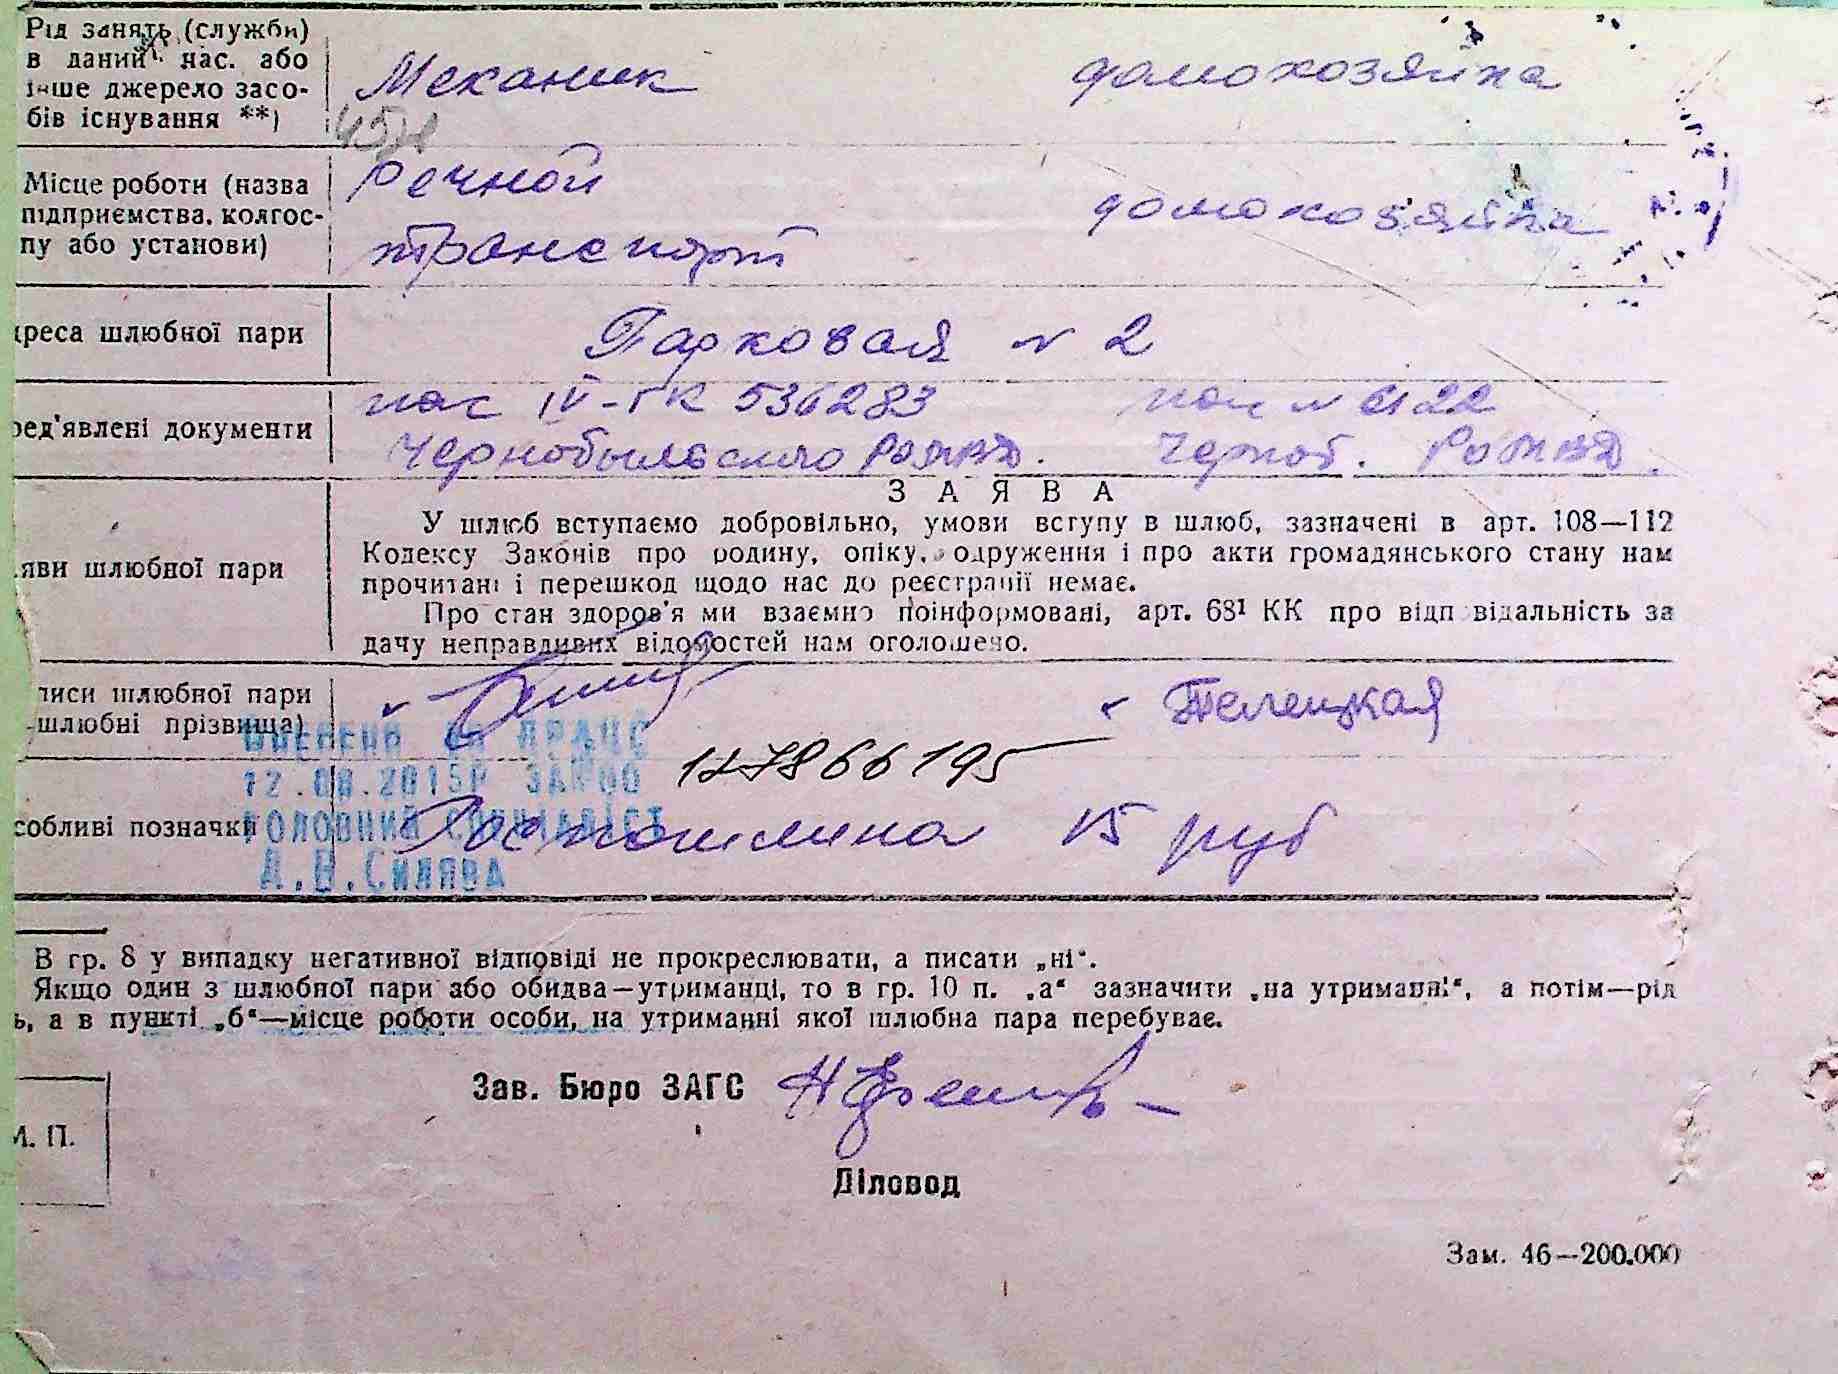 Рід занять (служби)
в даний час. або
інше джерело засо-
бів існування **)
Механик
домохозяйка
Місце роботи (назва
підприємства, колгос-
пу або установи)
речной
транспорт
домохозяйка
реса шлюбної пари
Парковая № 2
ред'явлені документи
пас IV-ГК 536283
Чернобыльского РОМВД.
Черноб. РОМВД.
яви шлюбної пари
ЗАЯВА
У шлюб вступаємо добровільно, умови вступу в шлюб, зазначені в арт. 108—112
Кодексу Законів про родину, опіку, одруження і про акти громадянського стану нам
прочитані і перешкод щодо нас до реєстрації немає.
Про стан здоров'я ми взаємно поінформовані, арт. 68¹ КК про відповідальність за
дачу неправдивих відомостей нам оголошено.
писи шлюбної пари
шлюбні прізвища)
Телецкая
ВНЕСЕНО ДО ДРАЦС
12.08.2015Р
ГОЛОВНИЙ СПЕЦІАЛІСТ
127866195
собливі позначки
Госпошлина 15 руб
В гр. 8 у випадку негативної відповіді не прокреслювати, а писати „ні“.
Якщо один з шлюбної пари або обидва—утриманці, то в гр. 10 п. „а“ зазначити „на утриманні“, а потім—рід
ь, а в пункті „б“—місце роботи особи, на утриманні якої шлюбна пара перебуває.
Зав. Бюро ЗАГС
М. П.
Діловод
Зам. 46—200.000